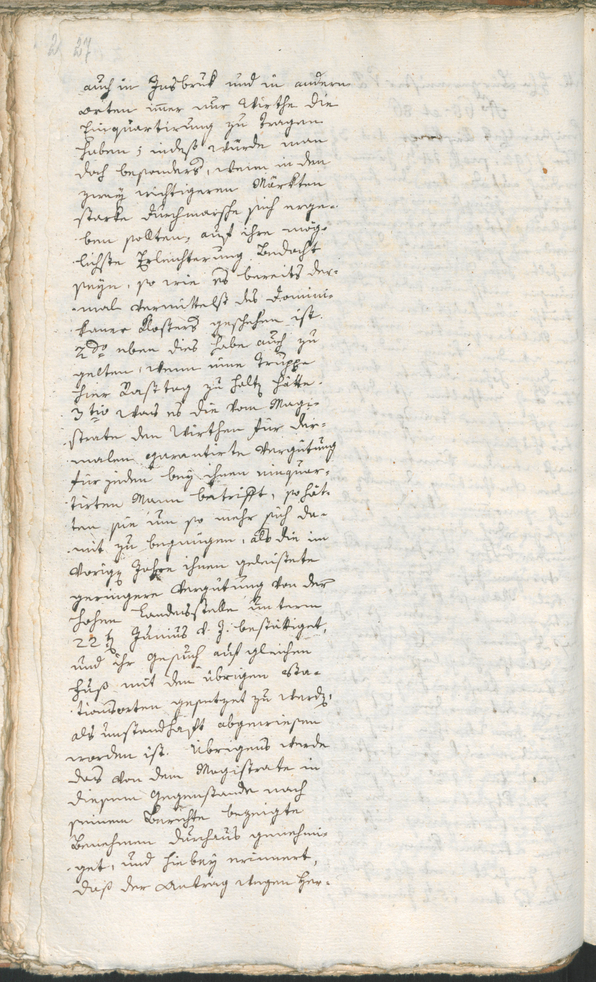 27
auch in Insbruk und in andern
Orten imer nur Wirthe die
Einquartirung zu tragen
haben; indeß würde man
doch besonders, wenn in den
zwey wichtigeren Märkten
starke Durchmarsche sich erge-
ben sollten, auf ihre mög-
lichste Erleichterung Bedacht
seyn, so wie es bereits der-
mal vermittelst des Domini-
kaner Klosters geschehen ist.
2do eben dies habe auch zu
gelten, wenn eine Truppe
hier Rasttag zu halten hätte.
3tio was es die vom Magi-
strate den Wirthen für der-
malen garantirte Vergütung
für jeden bey ihnen einquar-
tirten Mann betrifft, so hät-
ten sie um so mehr sich da-
mit zu begnügen, als die im
vorigen Jahre ihnen geleistete
geringere Vergütung von der
hohen Landesstelle unterm
22ten Junius v. J. bestättiget,
und ihr Gesuch auf gleichen
Fuß mit den übrigen Sta-
tionsorten gesetzet zu werden,
als unstandhaft abgewiesen
worden ist. Übrigens werde
das von dem Magistrate in
diesem Gegenstande nach
seinem Berichte bezeigte
Benehmen durchaus genehmi-
get, und hiebey erinnert,
daß der Antrag wegen Her-